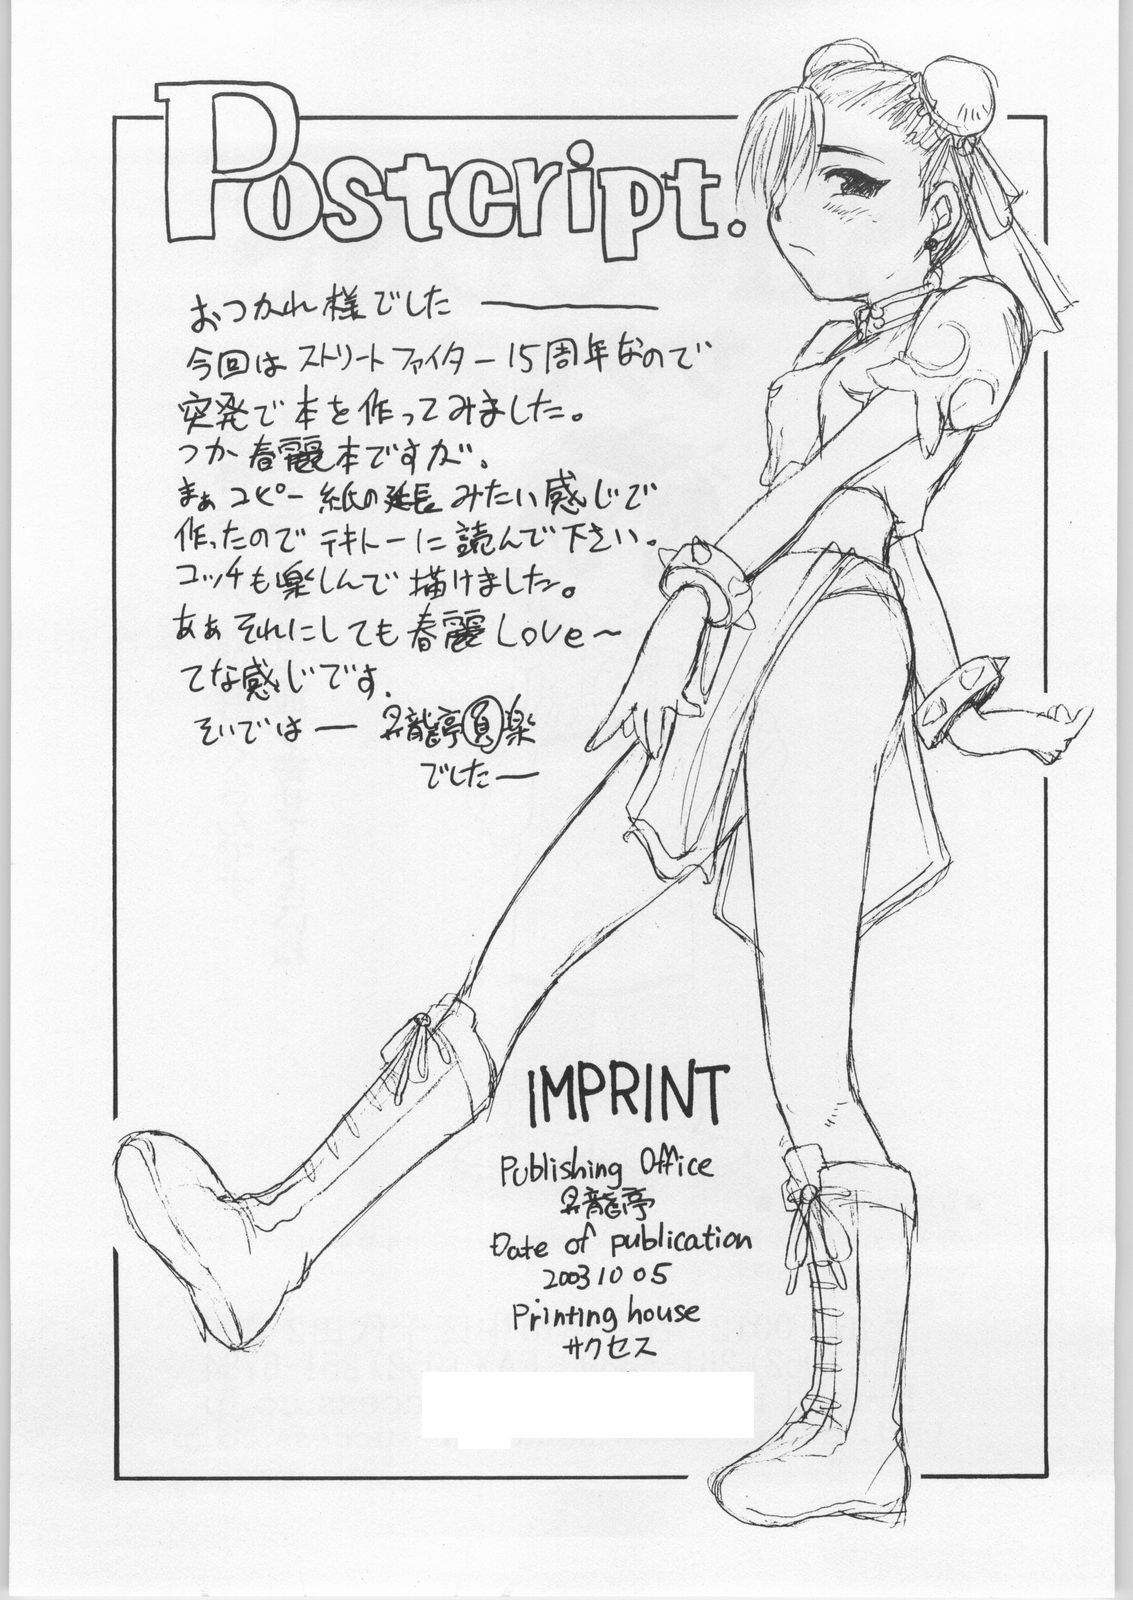 Postcript.
おつかれ様でした ―――
今回は ストリートファイター 15周年なので
突発で 本を 作ってみました。
つか 春麗本ですが。
まぁ コピー 紙の延長 みたい感じで
作ったので テキトーに 読んで下さい。
コッチも楽しんで 描けました。
あぁ それにしても 春麗 Love～
てな感じです.
そいでは―
でした―
IMPRINT
Publishing Office
Date of publication
2003 10 05
Printing house
サクセス